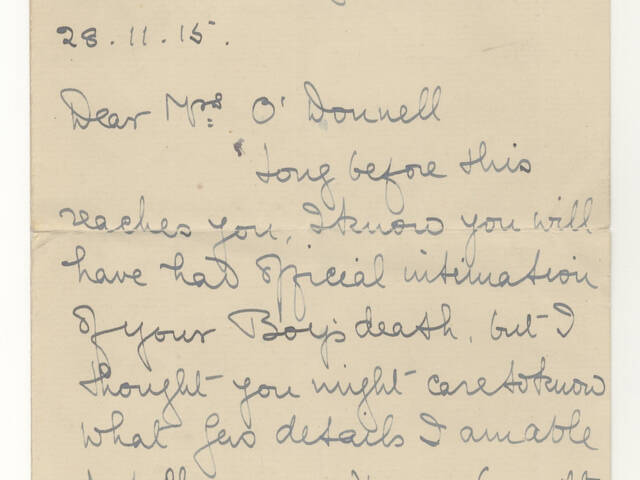 28.11.15.
Dear Mrs. O'Donnell
Long before this
reaches you, I know you will
have had official intimation
of your Boy's death, but I
thought you might care to know
what few details I am able